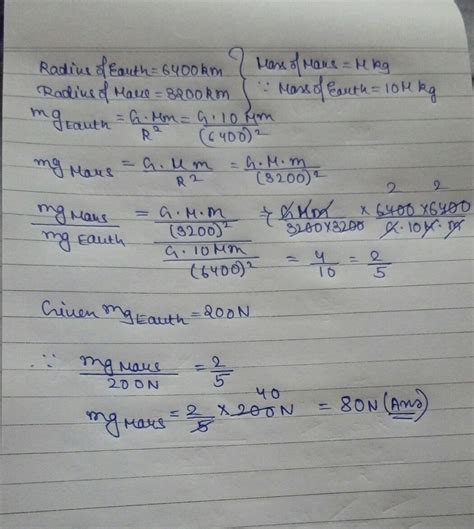 Radius of Earth = 6400 km } Mass of Mars = M kg
Radius of Mars = 3200 km } ∵ Mass of Earth = 10M kg
mg Earth = G·Mm/R² = G·10 Mm/(6400)²
mg Mars = G·M m/R² = G·M·m/(3200)²
mg Mars/mg Earth = G·M·m/(3200)² / G·10Mm/(6400)² = GMm/3200×3200 × 6400×6400/G·10M·m
2 2
= 4/10 = 2/5
Given mg Earth = 200N
∴ mg Mars/200N = 2/5
mg Mars = 2/5 × 200N = 80N (Ans)
40